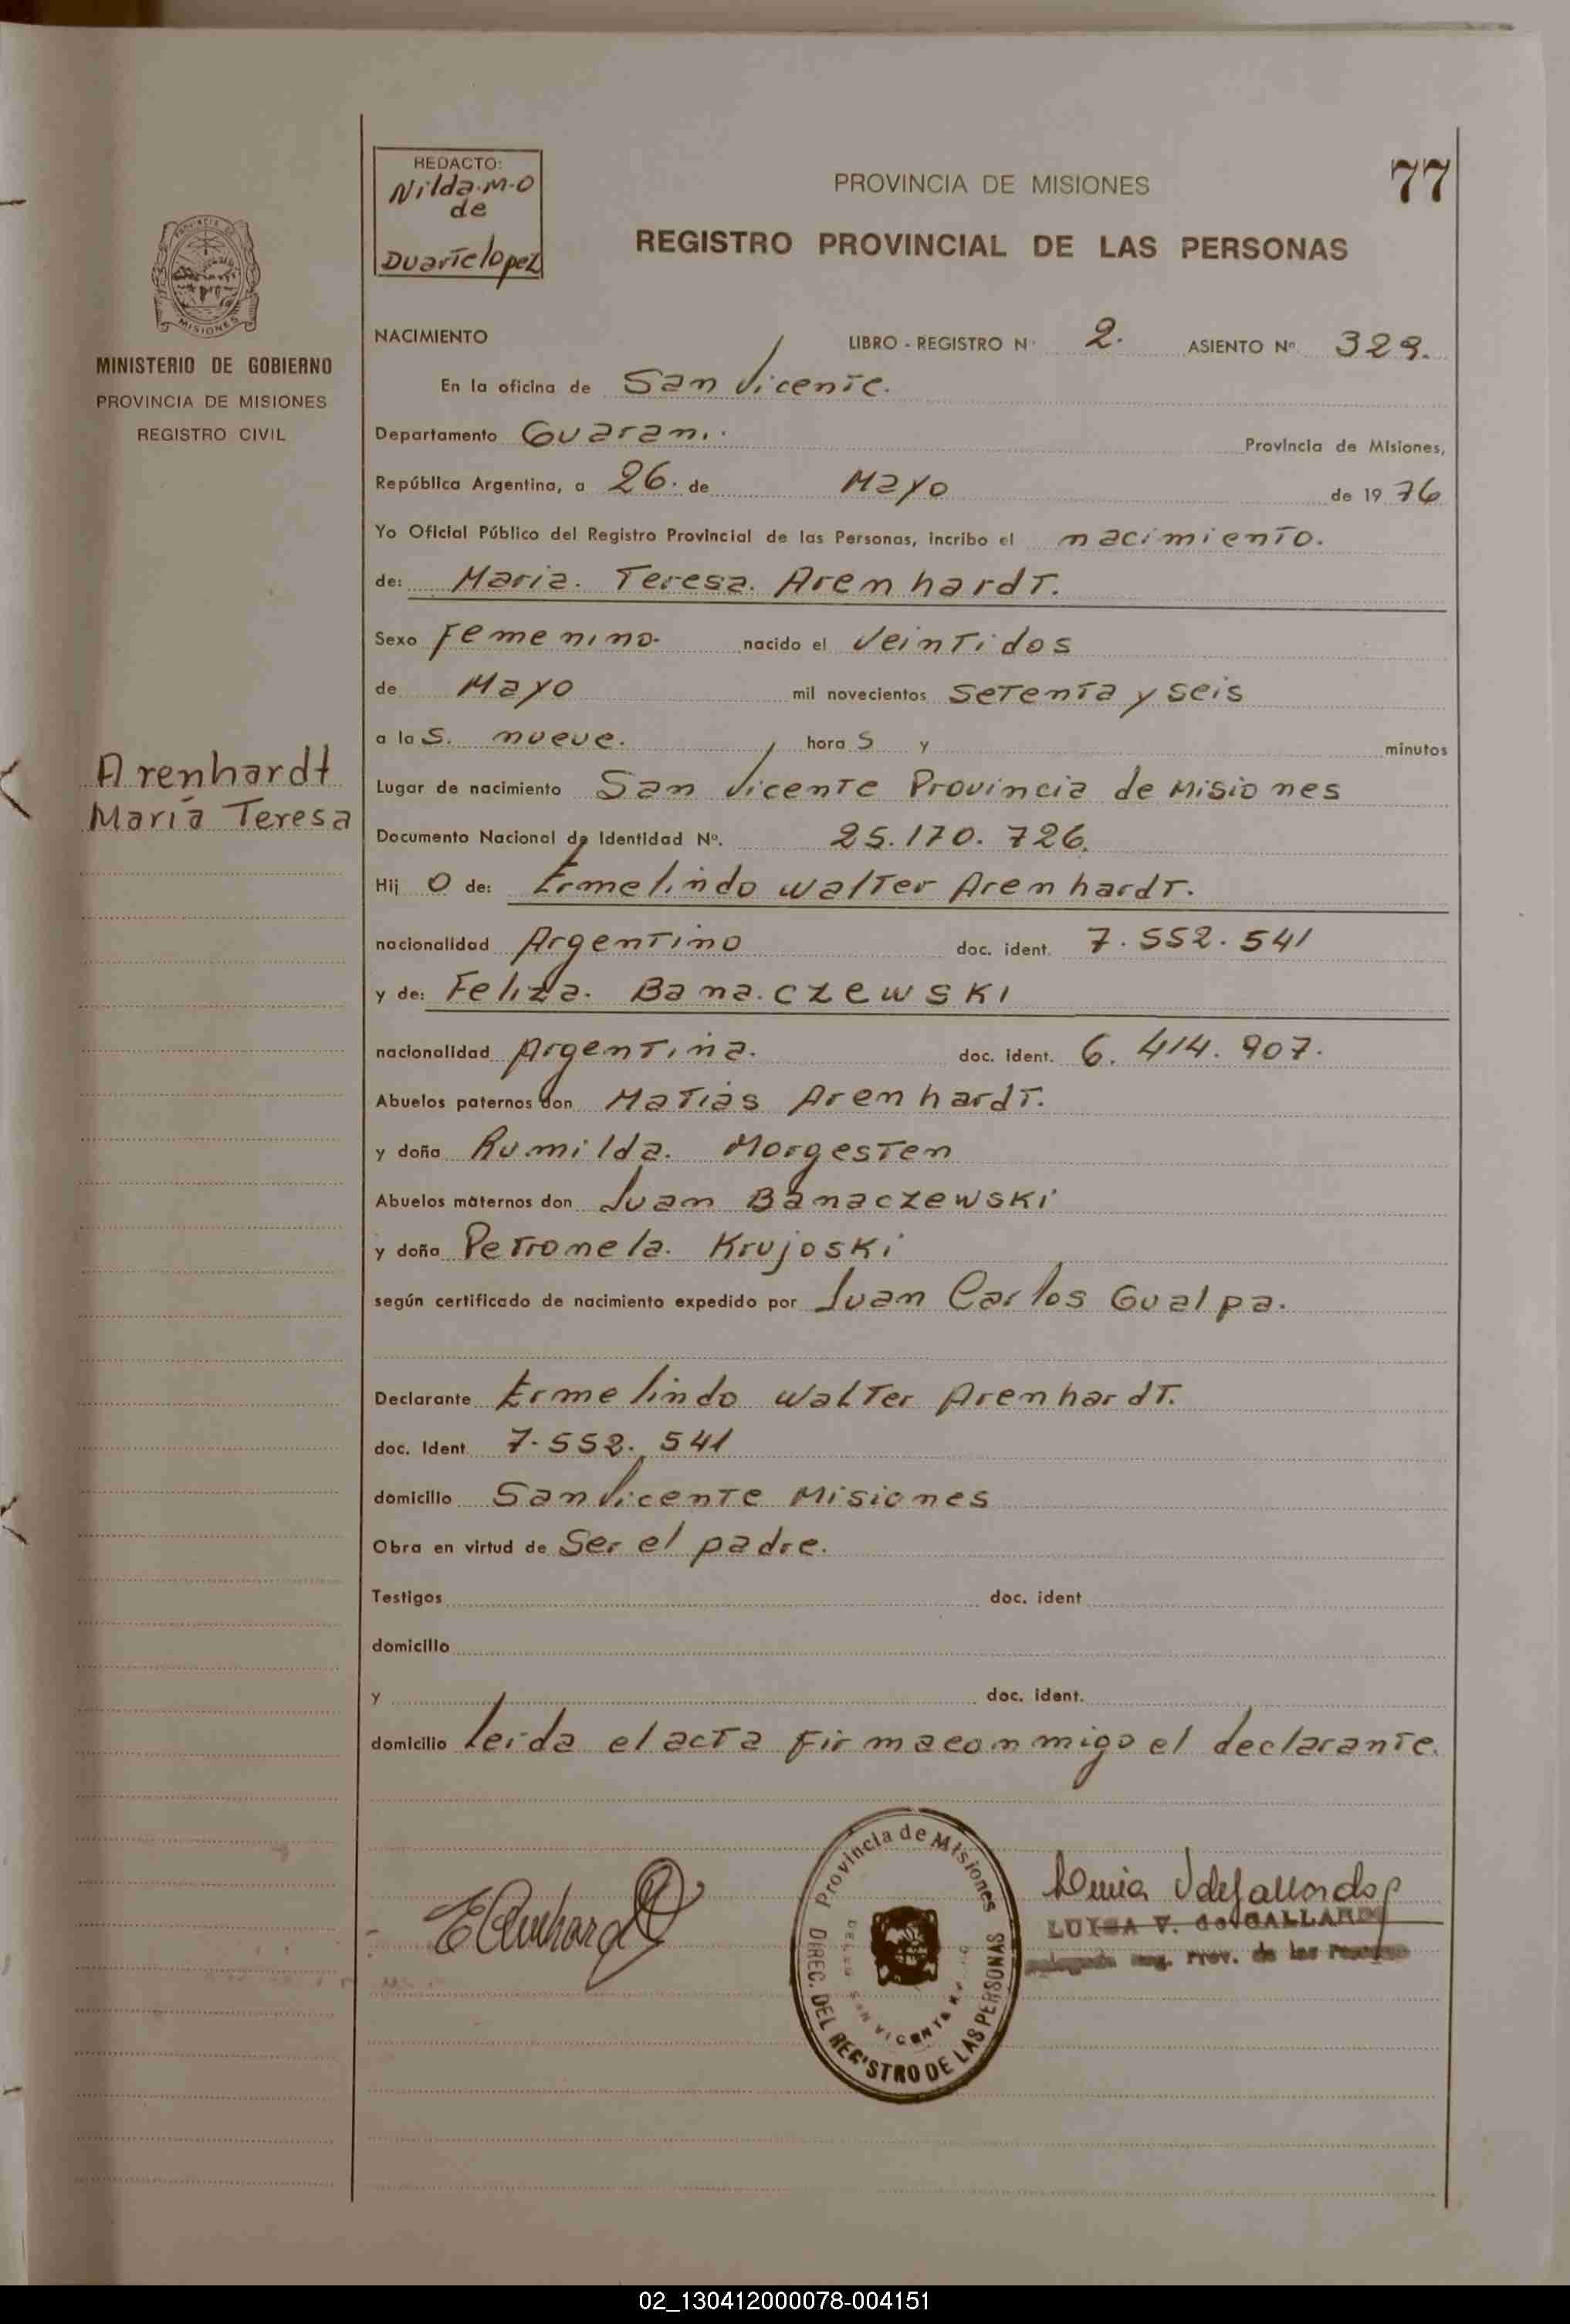 REDACTO:
Nilda.M.O
de
Duarte lopez
PROVINCIA DE MISIONES
77
REGISTRO PROVINCIAL DE LAS PERSONAS
PROVINCIA DE
MISIONES
MINISTERIO DE GOBIERNO
PROVINCIA DE MISIONES
REGISTRO CIVIL
Arenhardt
María Teresa
NACIMIENTO
LIBRO - REGISTRO Nº 2. ASIENTO Nº 329.
En la oficina de San Vicente.
Departamento Guarani. Provincia de Misiones,
República Argentina, a 26. de Mayo de 1976
Yo Oficial Público del Registro Provincial de las Personas, incribo el nacimiento.
de: Maria. Teresa. Arenhardt.
Sexo Femenino. nacido el Veintidos
de Mayo mil novecientos setenta y seis
a las. nueve. horas y minutos
Lugar de nacimiento San Vicente Provincia de Misiones
Documento Nacional de Identidad Nº. 25.170.726.
Hijo de: Ermelindo Walter Arenhardt.
nacionalidad Argentino doc. ident. 7.552.541
y de: Feliza. Banaczewski
nacionalidad Argentina. doc. ident. 6.414.907.
Abuelos paternos don Matias Arenhardt.
y doña Rumilda. Morgesten
Abuelos maternos don Juan Banaczewski
y doña Petronela. Krujoski
según certificado de nacimiento expedido por Juan Carlos Gualpa.
Declarante Ermelindo Walter Arenhardt.
doc. Ident. 7.552.541
domicilio San Vicente Misiones
Obra en virtud de Ser el padre.
Testigos doc. ident
domicilio
y doc. ident.
domicilio leida el acta firma conmigo el declarante.
EArenhardt
Provincia de Misiones
DIREC. DEL REGISTRO DE LAS PERSONAS
SAN VICENTE
LUISA V. de GALLARDO
Reg. Prov. de las Personas
02_130412000078-004151